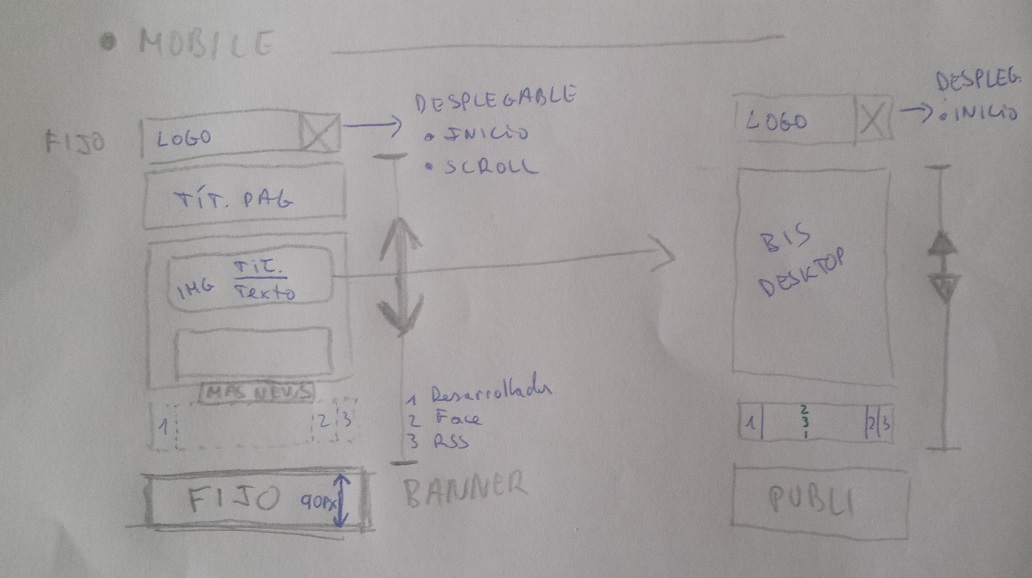 • MOBILE
FIJO
LOGO
DESPLEGABLE
• INICIO
• SCROLL
TÍT. PAG
IMG
TÍT.
Texto
MAS NEWS
1
2
3
1 Desarrollador
2 Face
3 RSS
FIJO
90PX
BANNER
LOGO
DESPLEG.
• INICIO
BIS
DESKTOP
1
2
3
1
2
3
PUBLI